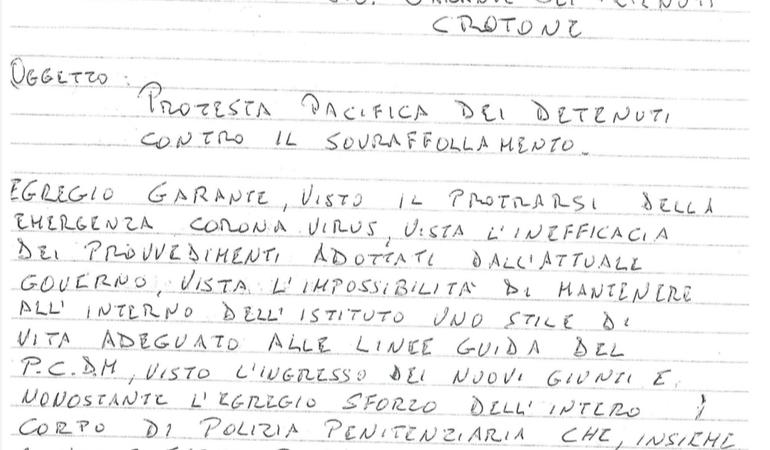 DEI DETENUTI
CROTONE
OGGETTO:
PROTESTA PACIFICA DEI DETENUTI
CONTRO IL SOVRAFFOLLAMENTO.
EGREGIO GARANTE, VISTO IL PROTRARSI DELLA
EMERGENZA CORONA VIRUS, VISTA L'INEFFICACIA
DEI PROVVEDIMENTI ADOTTATI DALL'ATTUALE
GOVERNO, VISTA L'IMPOSSIBILITA' DI MANTENERE
ALL'INTERNO DELL'ISTITUTO UNO STILE DI
VITA ADEGUATO ALLE LINEE GUIDA DEL
P.C.D.M, VISTO L'INGRESSO DEI NUOVI GIUNTI E
NONOSTANTE L'EGREGIO SFORZO DELL'INTERO
CORPO DI POLIZIA PENITENZIARIA CHE, INSIEME